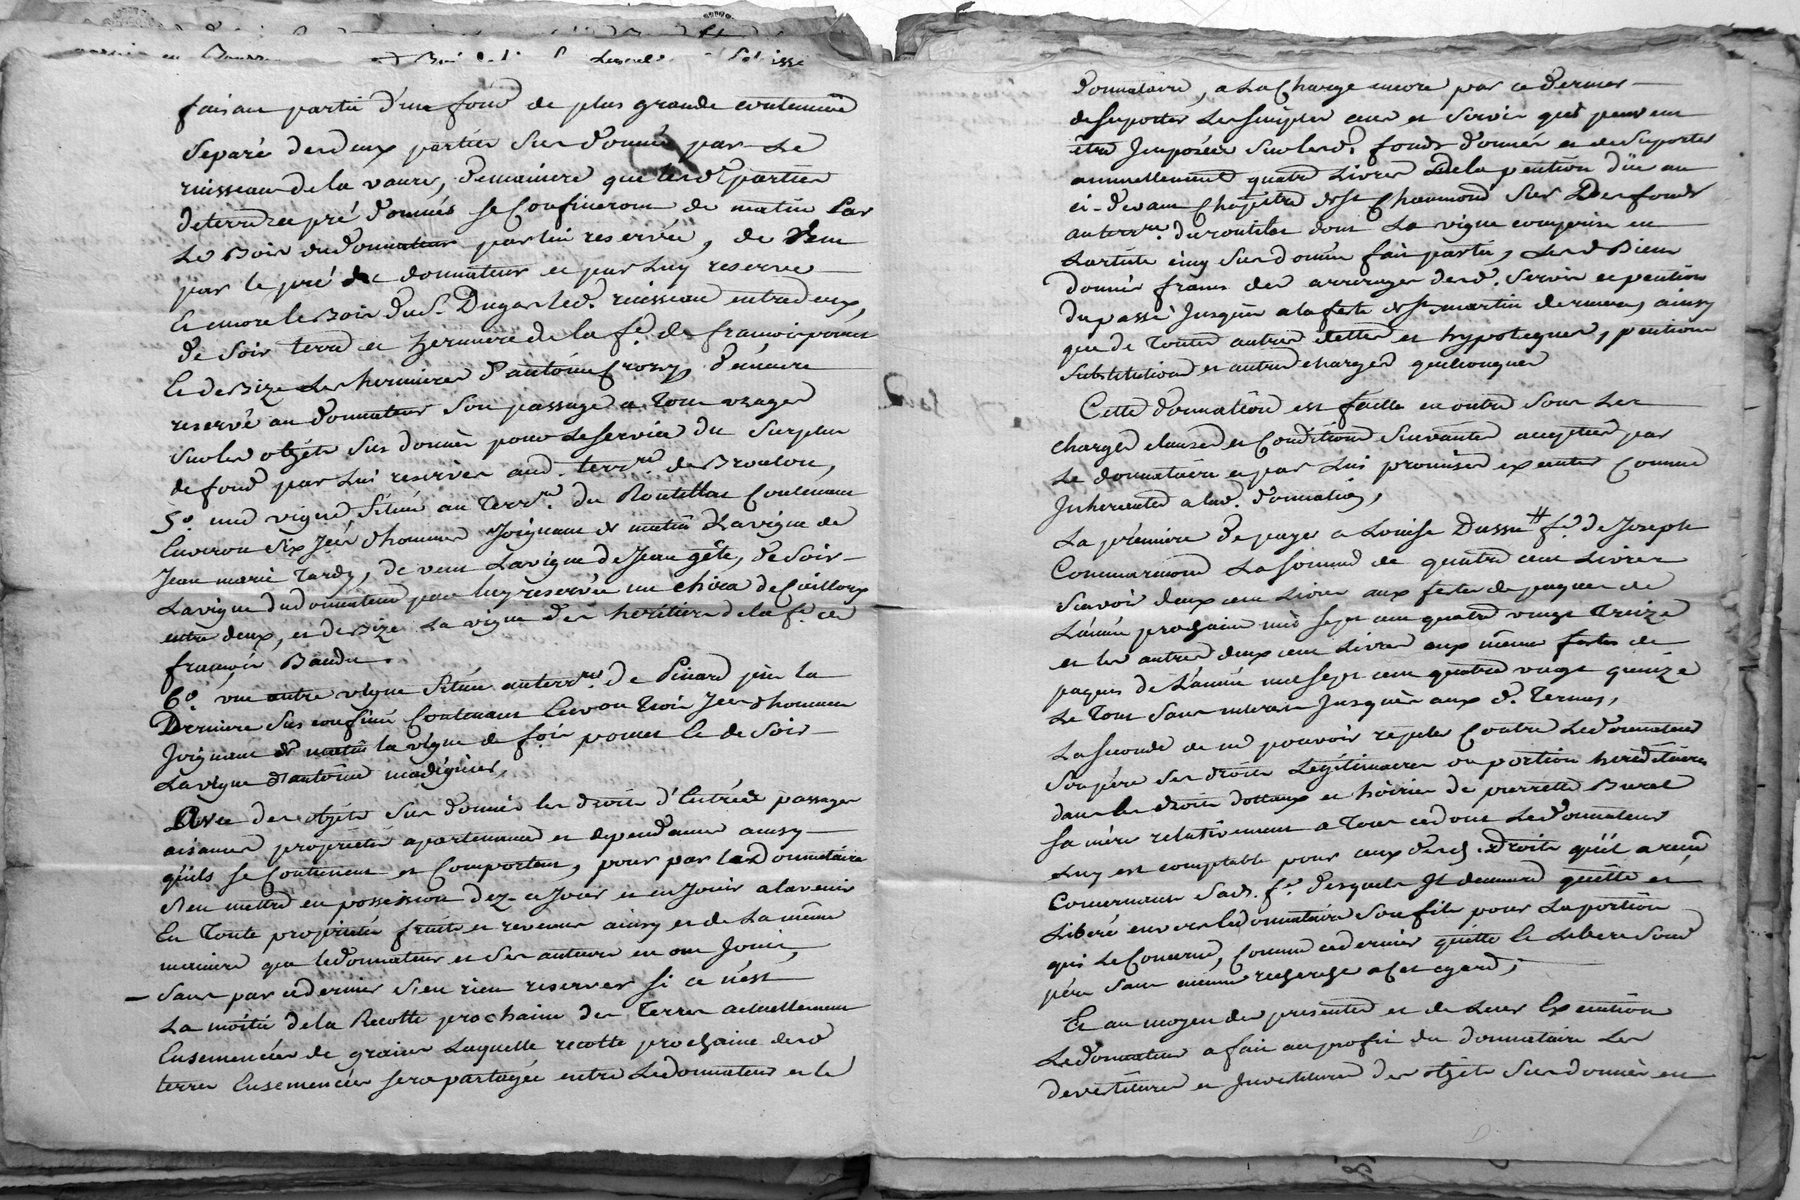 faisant partie d'un fond de plus grande contenance
separé desdeux parties sus données par Le
ruisseau de la vaure, demaniere que lesd. parties
deterre et pré donnés se Confineront de matin par
Le Bois dudonnateur parlui reservée, de vent
par le pré du donnateur et par Luy reservé
Et encore le Bois du Sr. Dugas led. ruisseau entredeux,
de soir terre et hermiere de la fe. de francois pomet
Et de Bize Les hermieres d'antoine Crozy, demeure
reservé au donnateur son passage a Tous usages
sur les objets sus donnés pour le service du surplus
de fond par lui reservés aud. terroire. de Broulou,
5°. une vigne, située au Terre. du Routillas Contenant
Environ six Jées dhommes Joignant de matin La vigne de
Jean marie Tardy, de vent La vigne de Jean géte, de soir
La vigne dudonnateur par luy reservée un chira de Cailloux
entre deux, et de Bize La vigne des heritiers de la fe. de
francois Baude.
6°. une autre vigne située au terre. de Pinard près la
Derniere sus confinée Contenant Environ Trois Jées dhommes
Joignant de matin la vigne de fois pomet Et de Soir
La vigne d'antoine madignier,
Avec des objets sus donnés les droits d'Entrées passages
aisances proprietés apartenances et dependances ainsy
qu'ils se Contiennent et Comportent, pour par le donnataire
s'en mettre en possession dez ce Jour et en Jouir a lavenir
En Toute proprieté fruits et revenus ainsy et de La même
maniere que ledonnateur et ses auteurs en ont Joui,
Sans par cedernier s'en rien reserver si ce n'est
La moitié dela Recolte prochaine des Terres actuellement
Ensemencées de graines Laquelle recolte prochaine desd.
terres Ensemencées sera partagée entre Ledonnateur et le
donnataire, a La Charge encore par ce dernier
de suporter Les simples cens et servis qui peuvent
être Imposées sur lesd. fonds donnés et de suporter
annuellement quatre Livres de la pention düe au
ci-devant Chapitre de St Chaumond sur Les fonds
au terre. duroutilat dont La vigne comprise en
L'article cinq sus donnée fait partie, Lesd Biens
donnés francs des arrerages desd. servis et pention
du passé Jusques a la fete de St martin derniere, ainsy
que de Toutes autres dettes et hypoteques, pentions
substitutions et autres charges quelconques
Cette donnation est faitte en outre sous Les
charges clauses et Conditions suivantes acceptées par
Le donnataire et par Lui promises executer Comme
Inherentes a lad. donnation,
La premiere de payer a Louise Dassu # fe. de Joseph
Commarmond La somme de quatre cent Livres
Sçavoir deux cent Livres aux festes de paques de
L'année prochaine mil sept cent quatre vingt Treize
et les autres deux cent Livres aux mêmes festes de
paques de L'année mil sept cent quatre vingt quinze
Le Tout sans interets Jusques aux d. Termes,
La seconde de ne pouvoir repeter Contre Ledonnateur
son pere ses droits Legitimaires ou portion hereditaires
dans les droits dottaux et hoiries de pierrette Buret
Sa mere relativement a Tous ce dont Ledonnateur
Luy est comptable pour ceux desd. Droits qu'il a reçu
Concernant Sad. fe. desquels Il demeure quitte et
Liberé envers ledonnataire son fils pour La portion
qui Le Concerne, Comme ce dernier quitte et Libere Sond
pere sans aucune recherche a cet egard,
Et au moyen des presentes et de Leur Execution
Ledonnateur a fait au profit du donnataire Les
devestitures et Investitures des objets sus donnés en